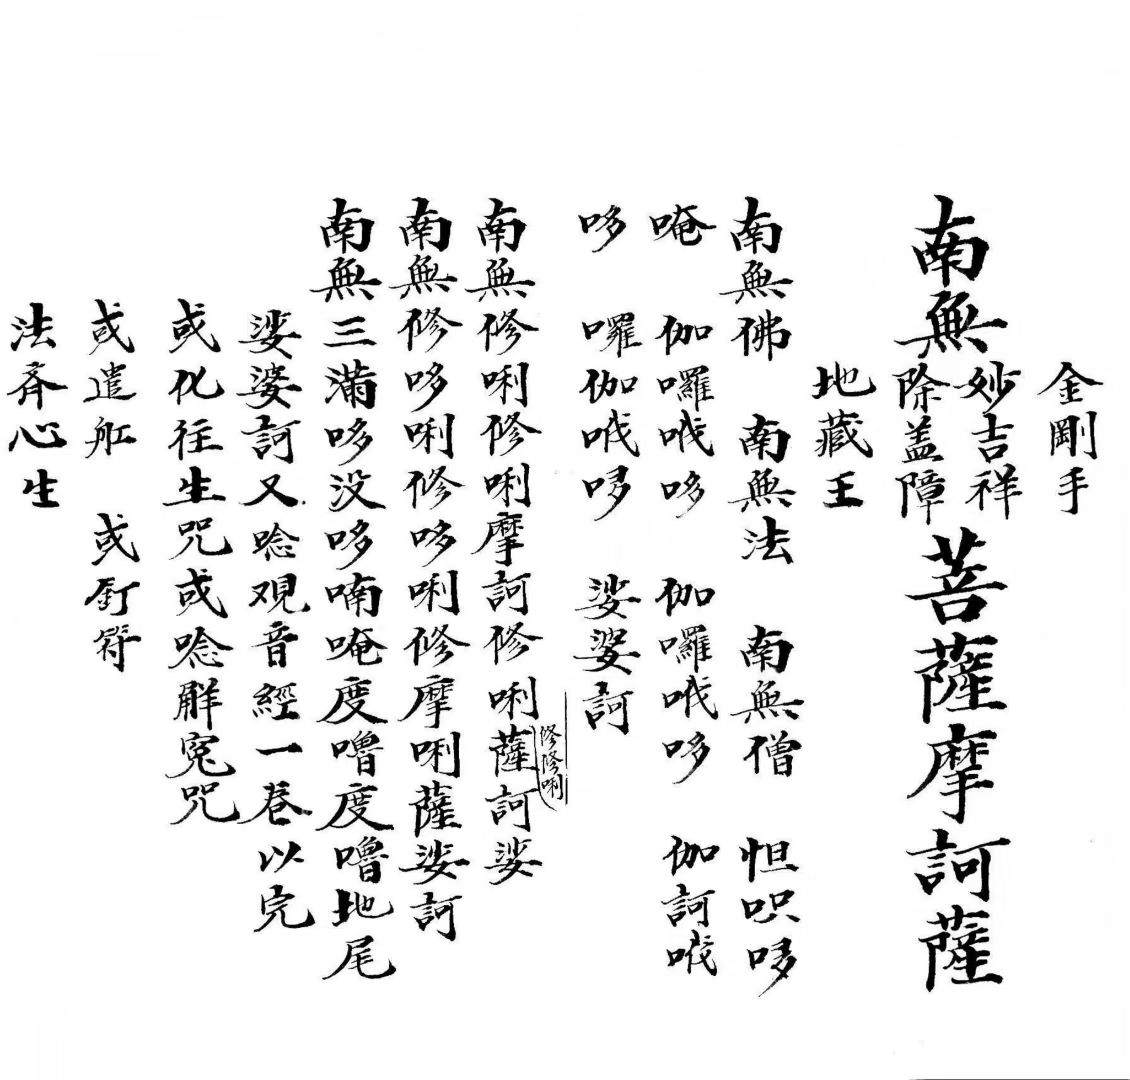 金剛手
南無 妙吉祥 除盖障 菩薩摩訶薩
地藏王
南無佛 南無法 南無僧 怛呮哆
唵 伽囉哦哆 伽囉哦哆 伽訶哦
哆 囉伽哦哆 娑婆訶
南無修唎修唎摩訶修唎薩訶娑
修修唎
南無修哆唎修哆唎修摩唎薩娑訶
南無三滿哆没哆喃唵度嚕度嚕地尾
娑婆訶又唸观音經一卷以完
或化往生咒或唸解冤咒
或遣舡 或釘符
法斉心生